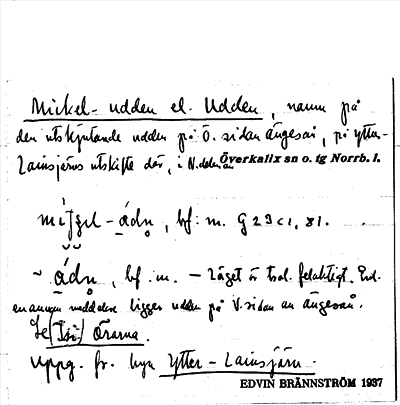 Mickel-udden el. Udden, namn på
den utskjutande udden på Ö. sidan Ängesån, på Ytter-
Lainsjärvs utskifte där, i N. delen av Överkalix sn o. tg Norrb. l.
bf. m. G 23 c 1, 81.
ådn, bf. m. – Läget är trol. felaktigt. Enl.
en annan meddelare ligger udden på V. sidan av Ängesån.
Se Örarna.
Uppg. fr. byn Ytter-Lainsjärv.
EDVIN BRÄNNSTRÖM 1937